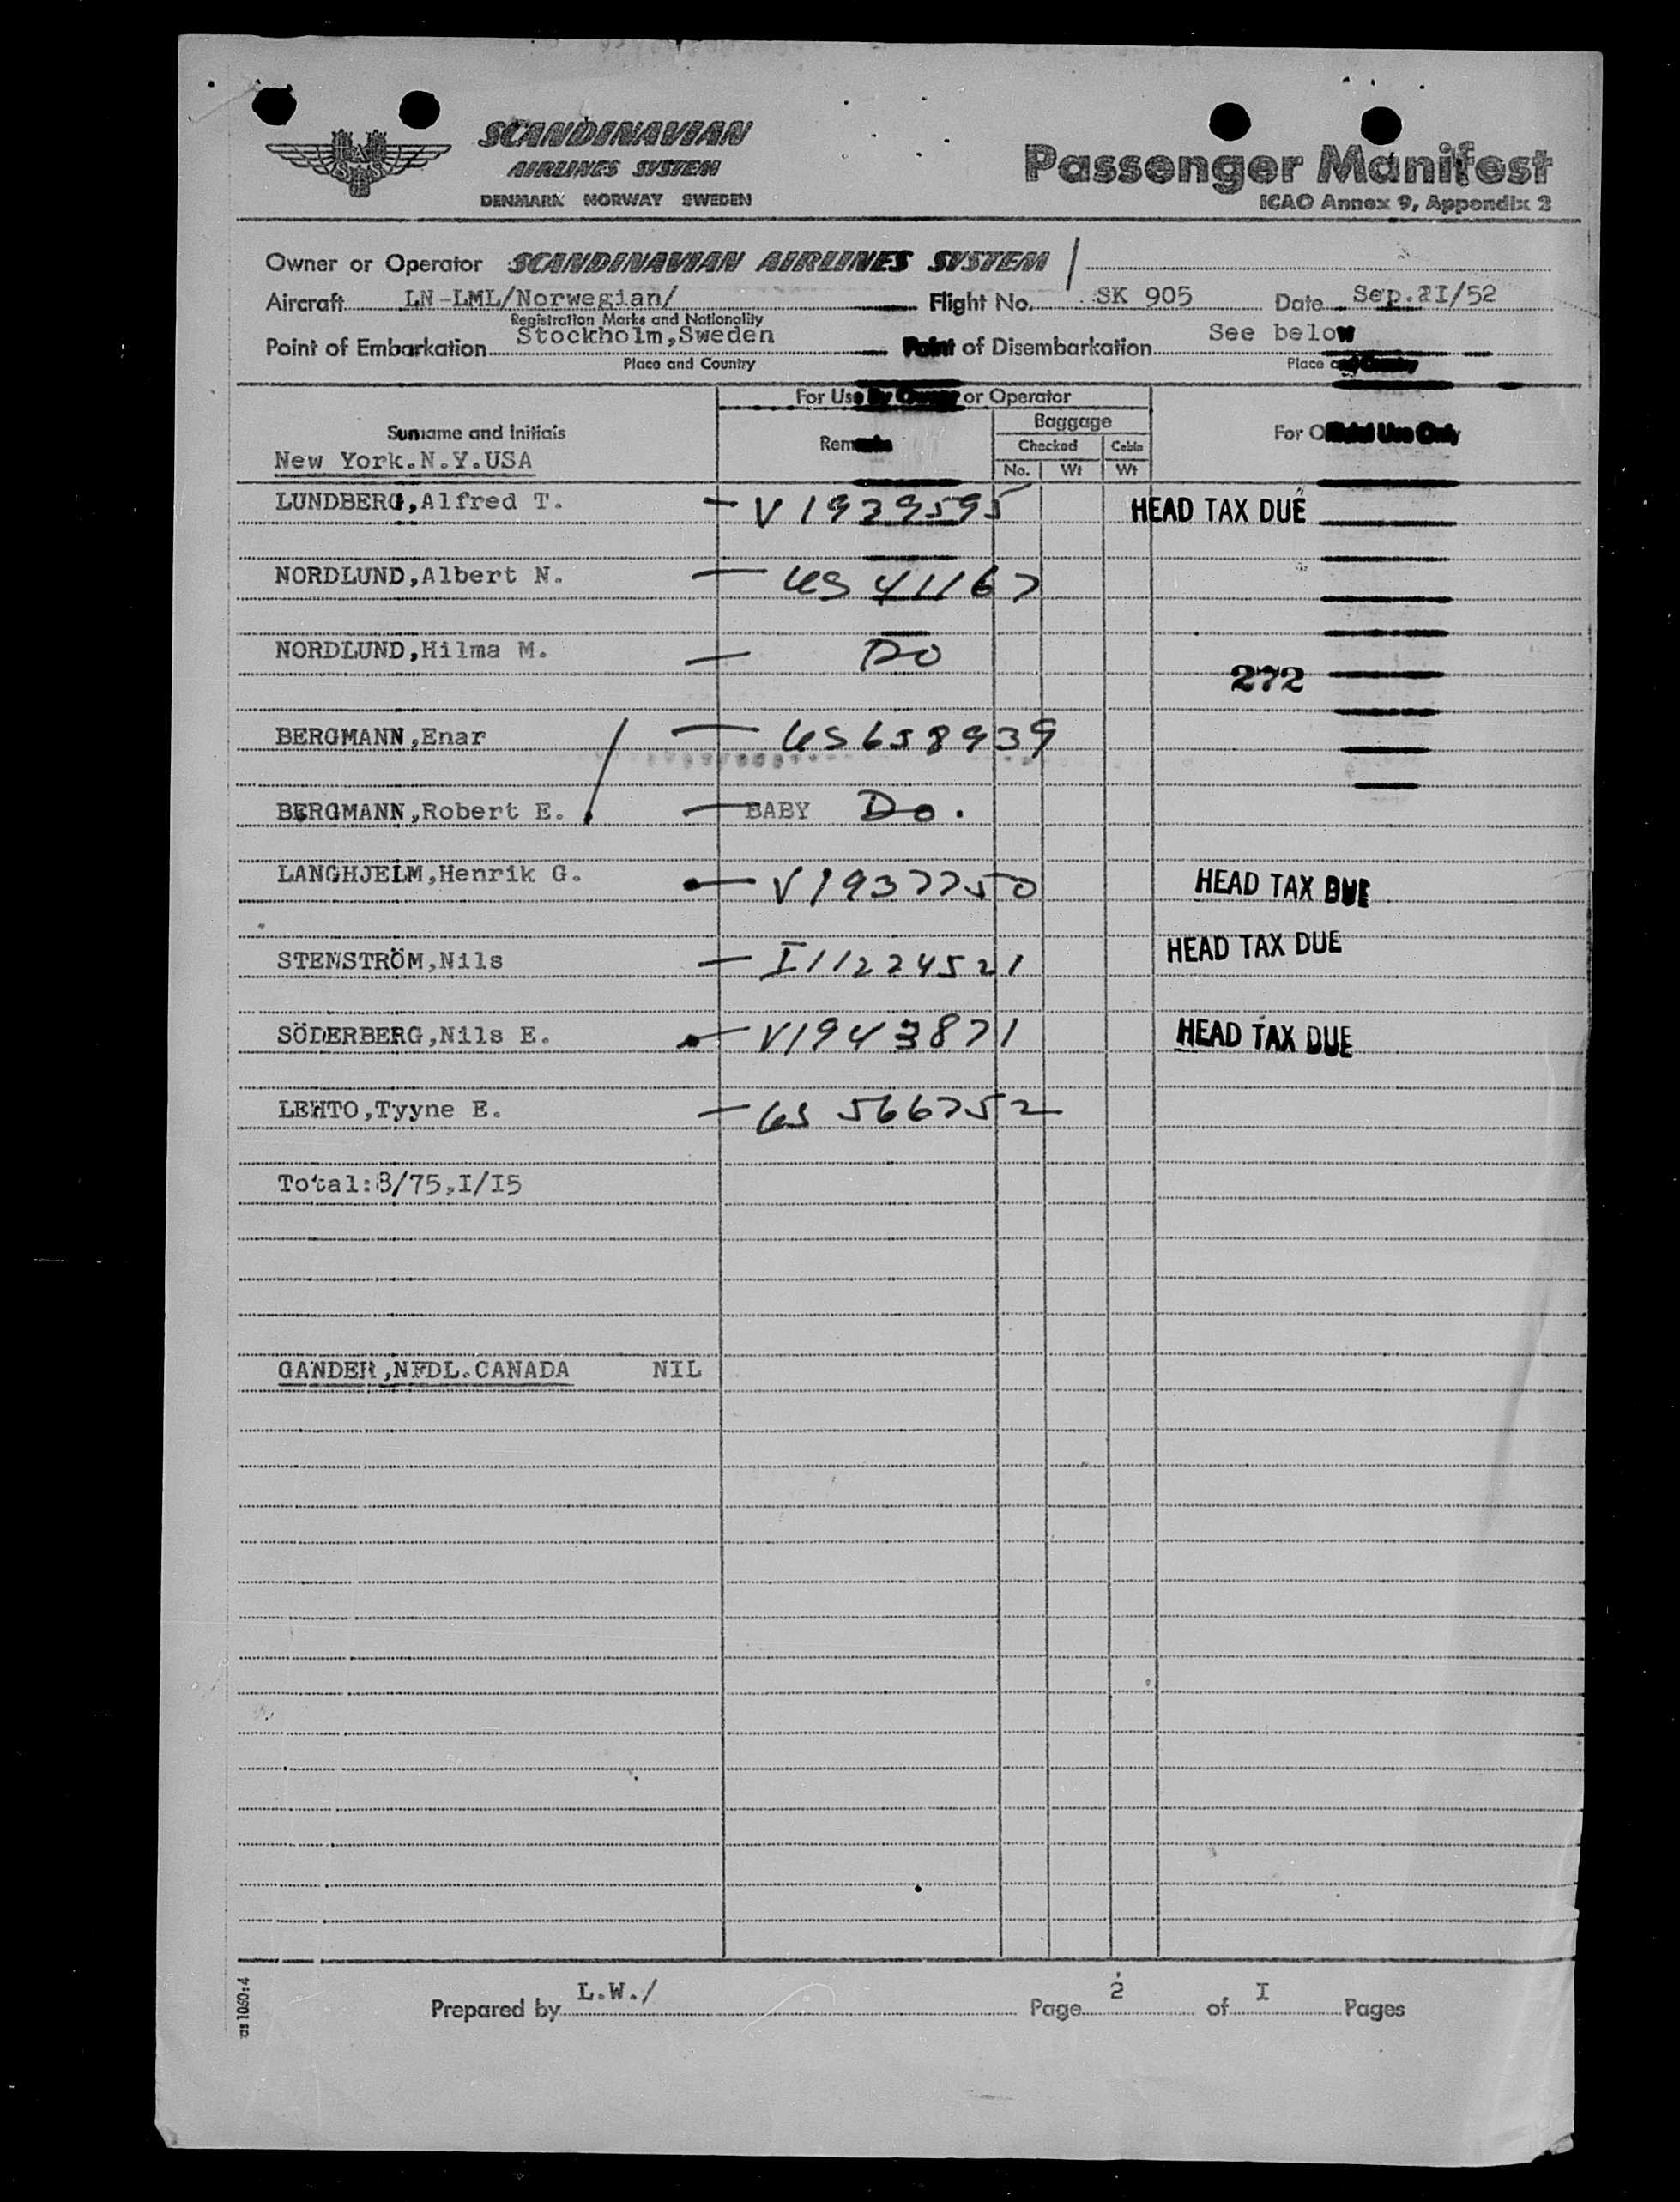 SCANDINAVIAN
AIRLINES SYSTEM
DENMARK NORWAY SWEDEN
Passenger Manifest
ICAO Annex 9, Appendix 2
Owner or Operator SCANDINAVIAN AIRLINES SYSTEM
Aircraft LN-LML/Norwegian/ Flight No. SK 905 Date Sep.2I/52
Registration Marks and Nationality
Point of Embarkation Stockholm,Sweden Point of Disembarkation See below
Place and Country Place and Country
For Use By Owner or Operator
Surname and Initials Remarks Baggage For Official Use Only
Checked Cabin
New York.N.Y.USA No. Wt Wt
LUNDBERG,Alfred T. — V 1929595 HEAD TAX DUE
NORDLUND,Albert N. — US 41167
NORDLUND,Hilma M. — Do
272
BERGMANN,Enar — US 658939
BERGMANN,Robert E. — BABY Do.
LANGHJELM,Henrik G. — V1937750 HEAD TAX DUE
STENSTRÖM,Nils — I11224521 HEAD TAX DUE
SÖDERBERG,Nils E. — V1943871 HEAD TAX DUE
LEHTO,Tyyne E. — US 566752
Total:8/75,I/I5
GANDER,NFDL.CANADA NIL
Prepared by L.W./ Page 2 of I Pages
as 1060:4